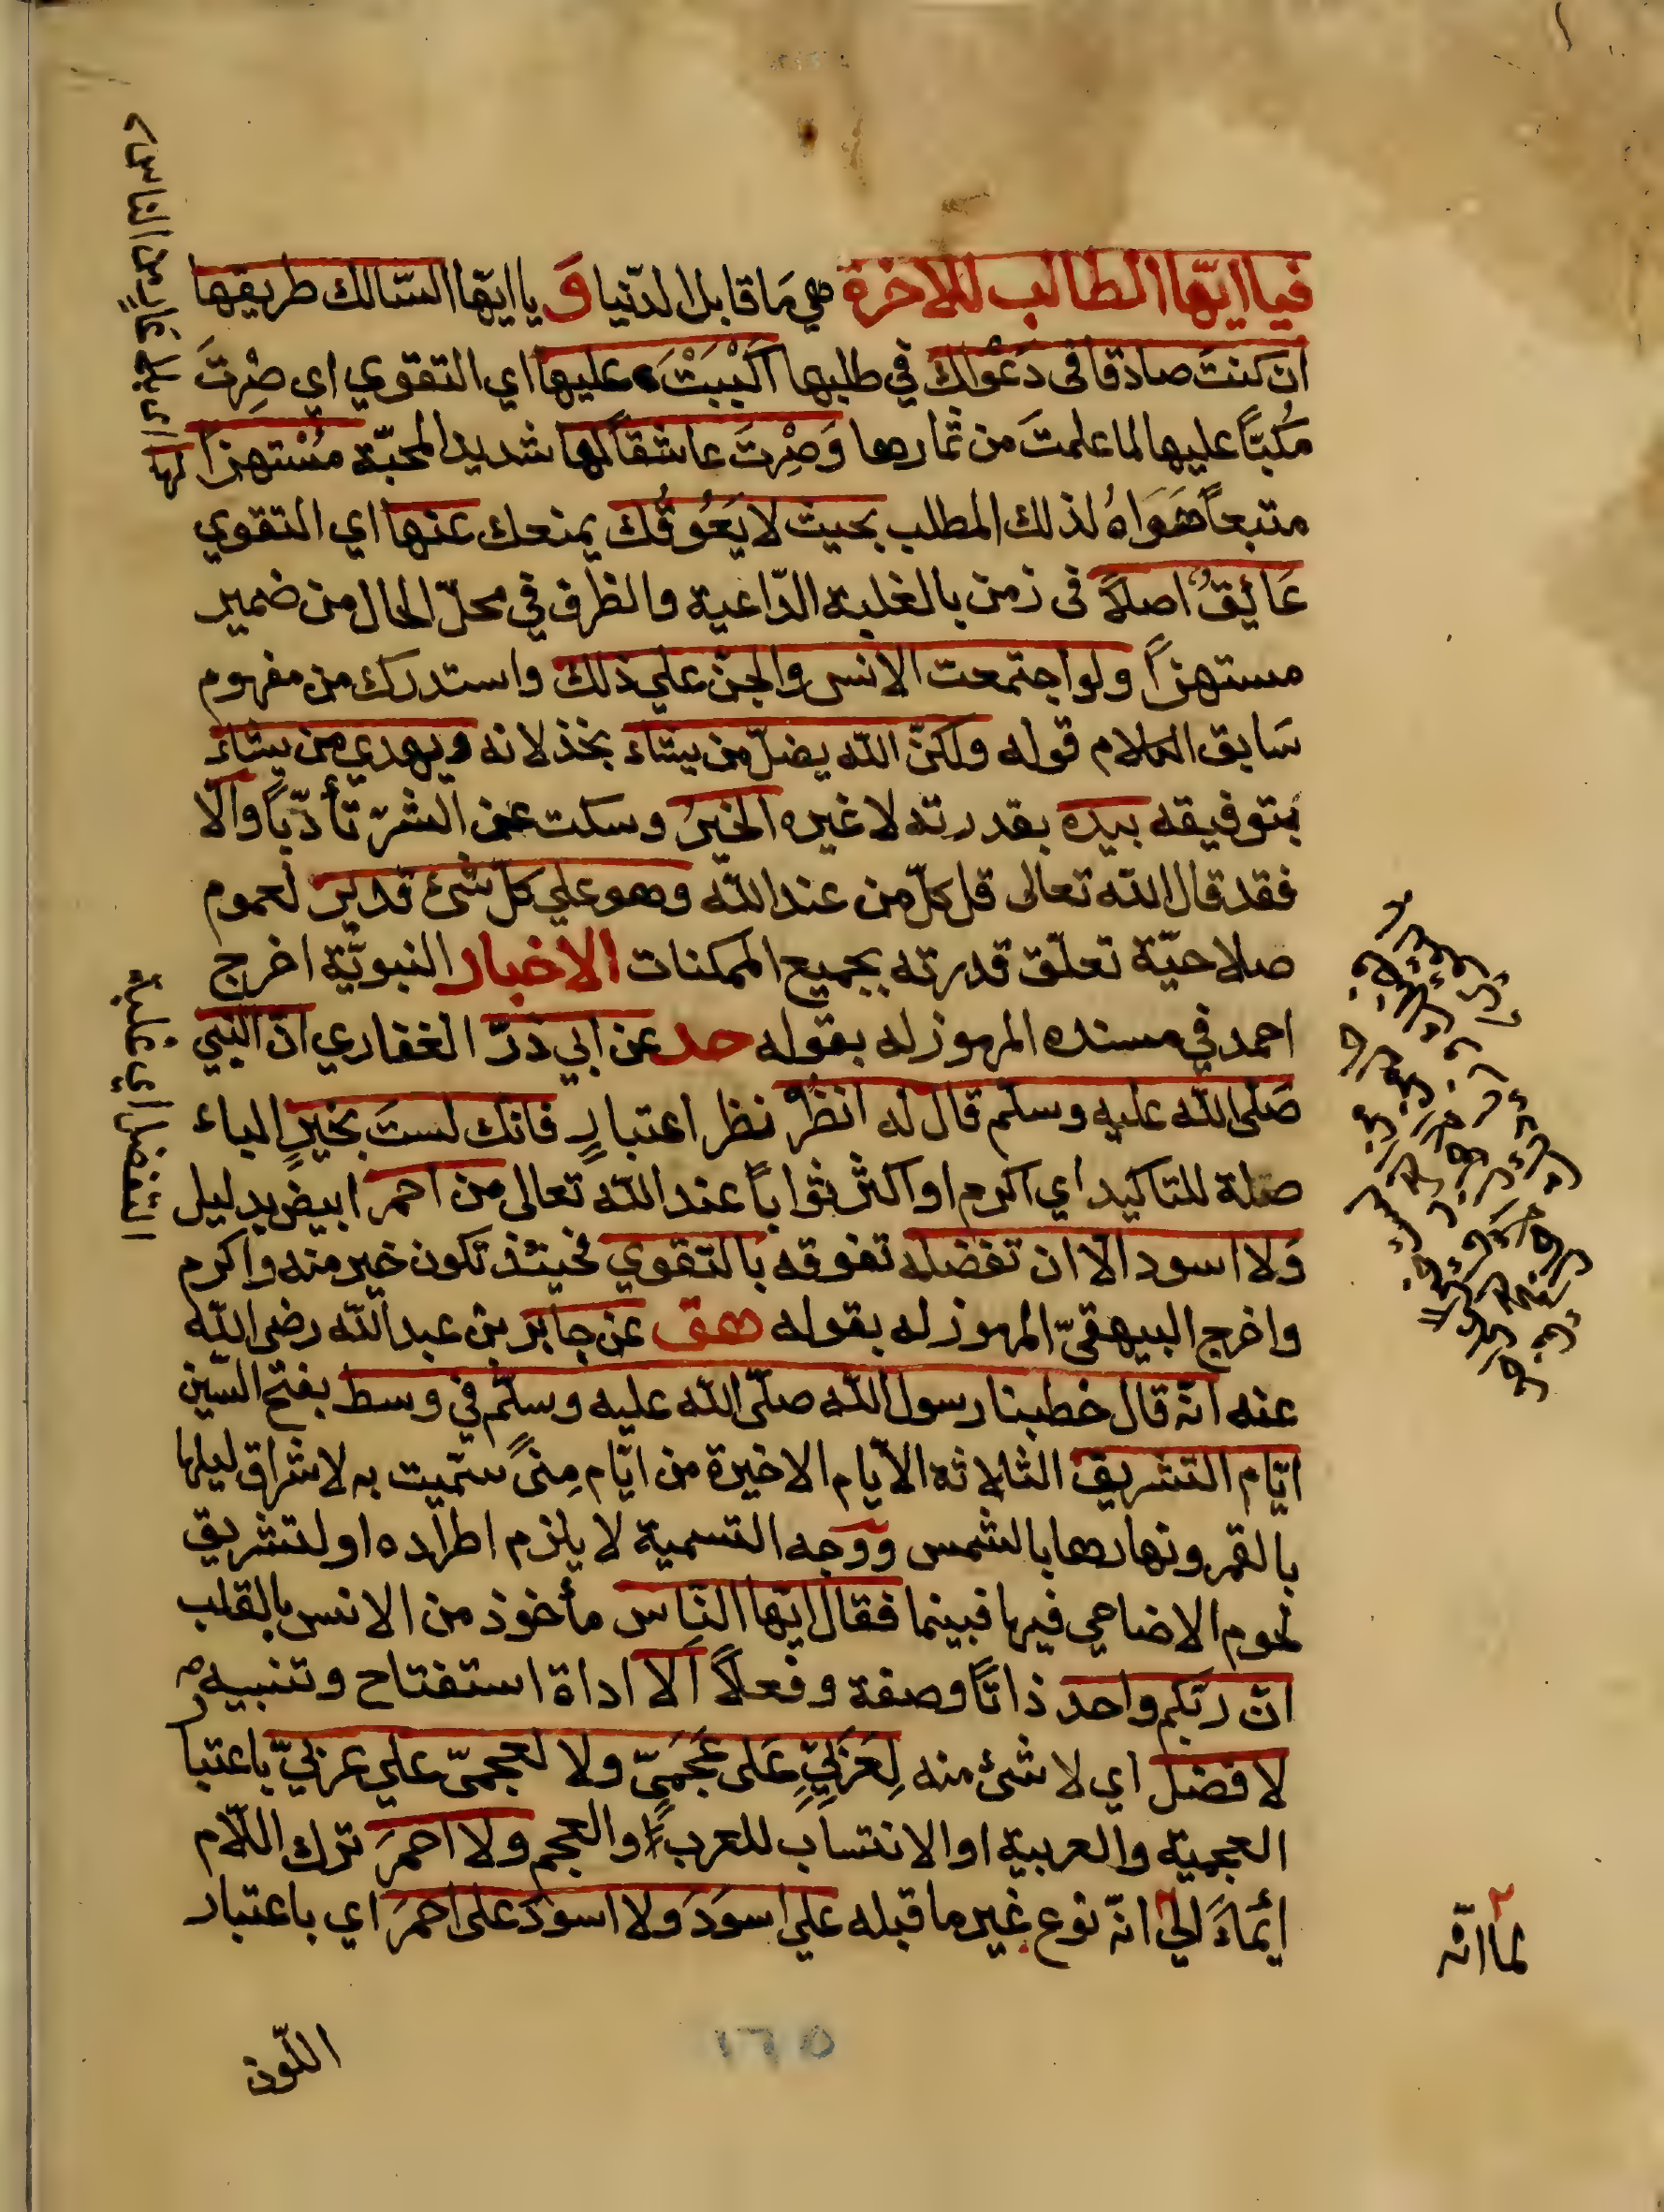 فيا ايّها الطالب للاخرة هي مَا قابل الدّنيا وَ يا ايّها السّالك طريقها
ان كنتَ صادقا فى دَعْواك في طلبها اَكْبَبْتَ عليها اي التقوي اي صِرْتَ
مكُبّاً عليها لما علمتَ من ثمارها وَصِرْتَ عاشقاً لها شديد المحبّة مُسْتهزاً
متبعاً هَوَاهُ لذلك المطلب بحيث لا يَعُوقُك يمنعك عنها اي التقوي
عَائِقٌ اصلاً فى زمن بالغلبة الدّاعية والظرف في محلّ الحال من ضمير
مستهزاً ولو اجتمعت الانس والجنّ علي ذلك واستدرك من مفهوم
سَابق الكلام قوله ولكنّ الله يضلّ من يشاء بخذلانه ويهدي من يشاء
بتوفيقه بيده بقدرته لا غيره الخيرُ وسكت عن الشرّ تأدّباً والّا
فقد قال الله تعالى قل كلّ من عند الله وهو علي كلّ شئ قدير لعموم
صلاحيّة تعلّق قدرته بجميع الممكنات الاخبار النبويّة اخرج
احمد في مسنده المرموز له بقوله حد عن ابي ذرّ الغفاري انّ النبي
صَلى الله عليه وسلم قال له انظُرْ نظر اعتبارٍ فانك لستَ بخيرٍ الباء
صلة للتاكيد اي اكرم او اكثر ثواباً عند الله تعالى من احمر ابيض بدليل
وَلا اسود الّا ان تفضله تفوقه بالتقوي فحينئذ تكون خير منه واكرم
واخرج البيهقىّ المرموز له بقوله هق عن جابر بن عبد الله رضى الله
عنه انّه قال خطبنا رسول الله صلّى الله عليه وسلّم في وسط بفتح السّين
ايّام التشريق الثلاثه الأيام الاخيرة من ايّام مِنىً سمّيت به لاشراق ليلها
بالقمر ونهارها بالشمس ووجه التسمية لا يلزم اطراده او لتشريق
لحوم الاضاحي فيها فبينما فقال ايّها النّاس مأخوذ من الانس بالقلب
انّ ربّكم واحد ذاتًا وصفة وفعلاً اَلا اداة استفتاح وتنبيه
لا فضل اي لا شئ منه لِعَرَبيٍّ عَلى عَجَمىٍّ ولا لعجمىّ علي عربيّ باعتبا
العجمية والعربية او الانتساب للعرب او العجم ولا احمرَ ترك اللّام
ائماءً الي انّه نوع غير ما قبله علي اسوَدَ ولا اسودَ على احمرَ اي باعتبار
لما انّه
اللّون
اي بلا من الناس
لها
التفضل اي غلبة
١٦٥